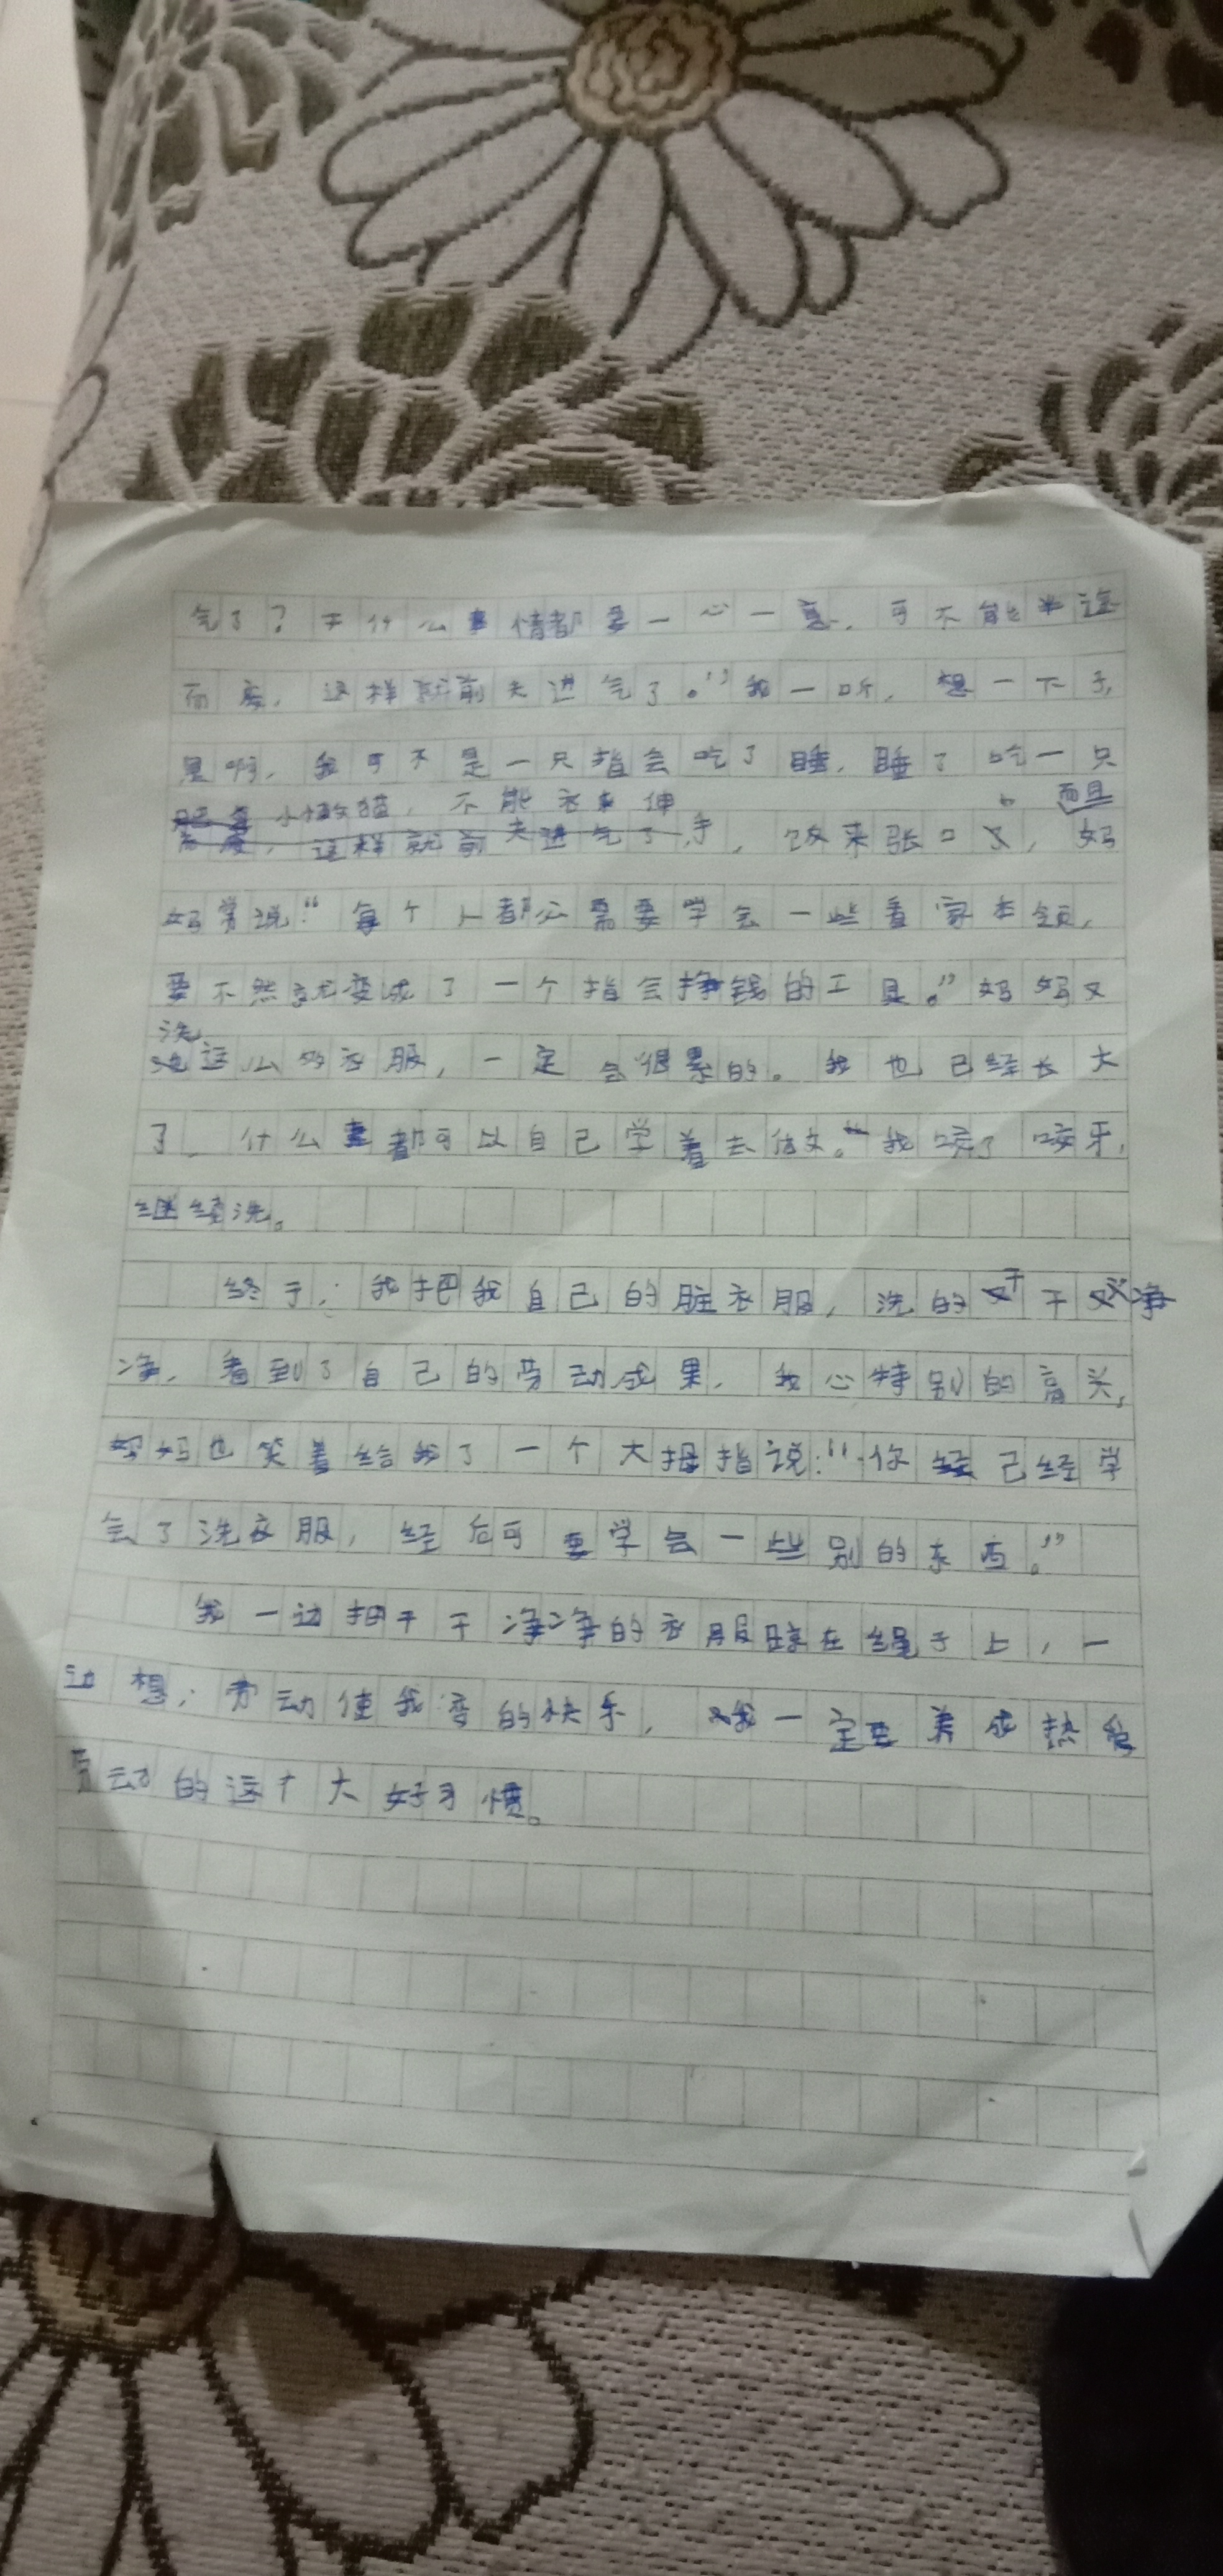 气了？干什么事情都要一心一意，可不能半途
而废，这样就前夫进气了。”我一听，想一下子，
是啊，我可不是一只指会吃了睡，睡了吃一只
小懒猫，不能衣来伸
手，饭来张口，而且妈
妈常说“每个人都必需要学会一些看家本领，
要不然就变成了一个指会挣钱的工具。”妈妈又
洗这么多衣服，一定会很累的。我也已经长大
了，什么事都可以自己学着去做。我咬了咬牙，
继续洗。
终于，我把我自己的脏衣服，洗的干干净
净，看到了自己的劳动成果，我心特别的高兴，
妈妈也笑着给我了一个大拇指说：“你已经学
会了洗衣服，经后可要学会一些别的东西。”
我一边把干干净净的衣服晾在绳子上，一
边想：劳动使我变的快乐，我一定要养成热爱
劳动的这个大好习惯。